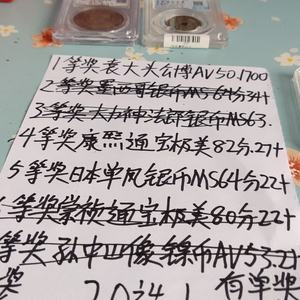 1等奖袁大头公博AV50.1700
2等奖墨西哥银币MS64分34+
3等奖大力神法郎银币MS63.
4等奖康熙通宝极美82分.27+
5等奖日本单凤银币MS64分22+
等奖崇祯通宝极美80分22+
等奖孙中山像镍币AV53.21+
奖 有单奖